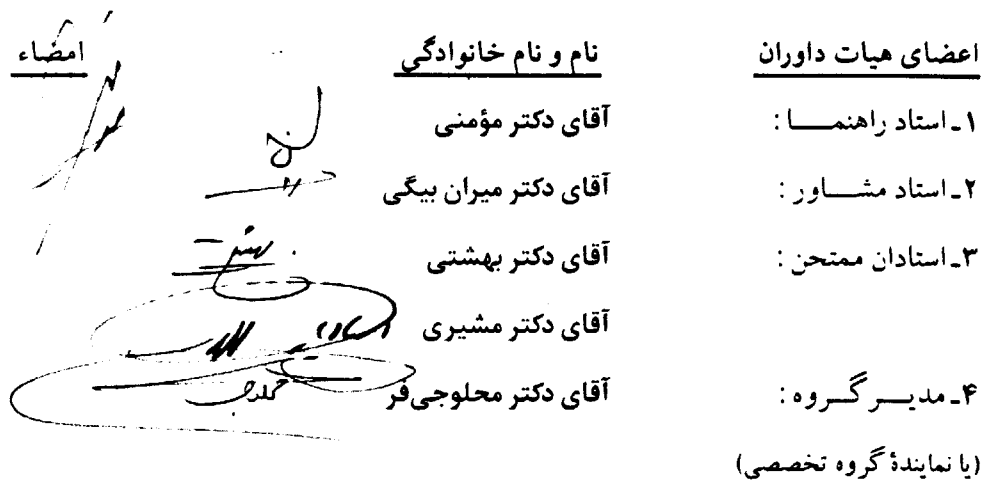 اعضای هیات داوران نام و نام خانوادگی امضاء
۱ـ استاد راهنمـــــا : آقای دکتر مؤمنی
۲ـ استاد مشـــاور : آقای دکتر میران بیگی
۳ـ استادان ممتحن : آقای دکتر بهشتی
آقای دکتر مشیری
۴ـ مدیـــر گـــروه : آقای دکتر محلوجی‌فر
(یا نمایندۀ گروه تخصصی)